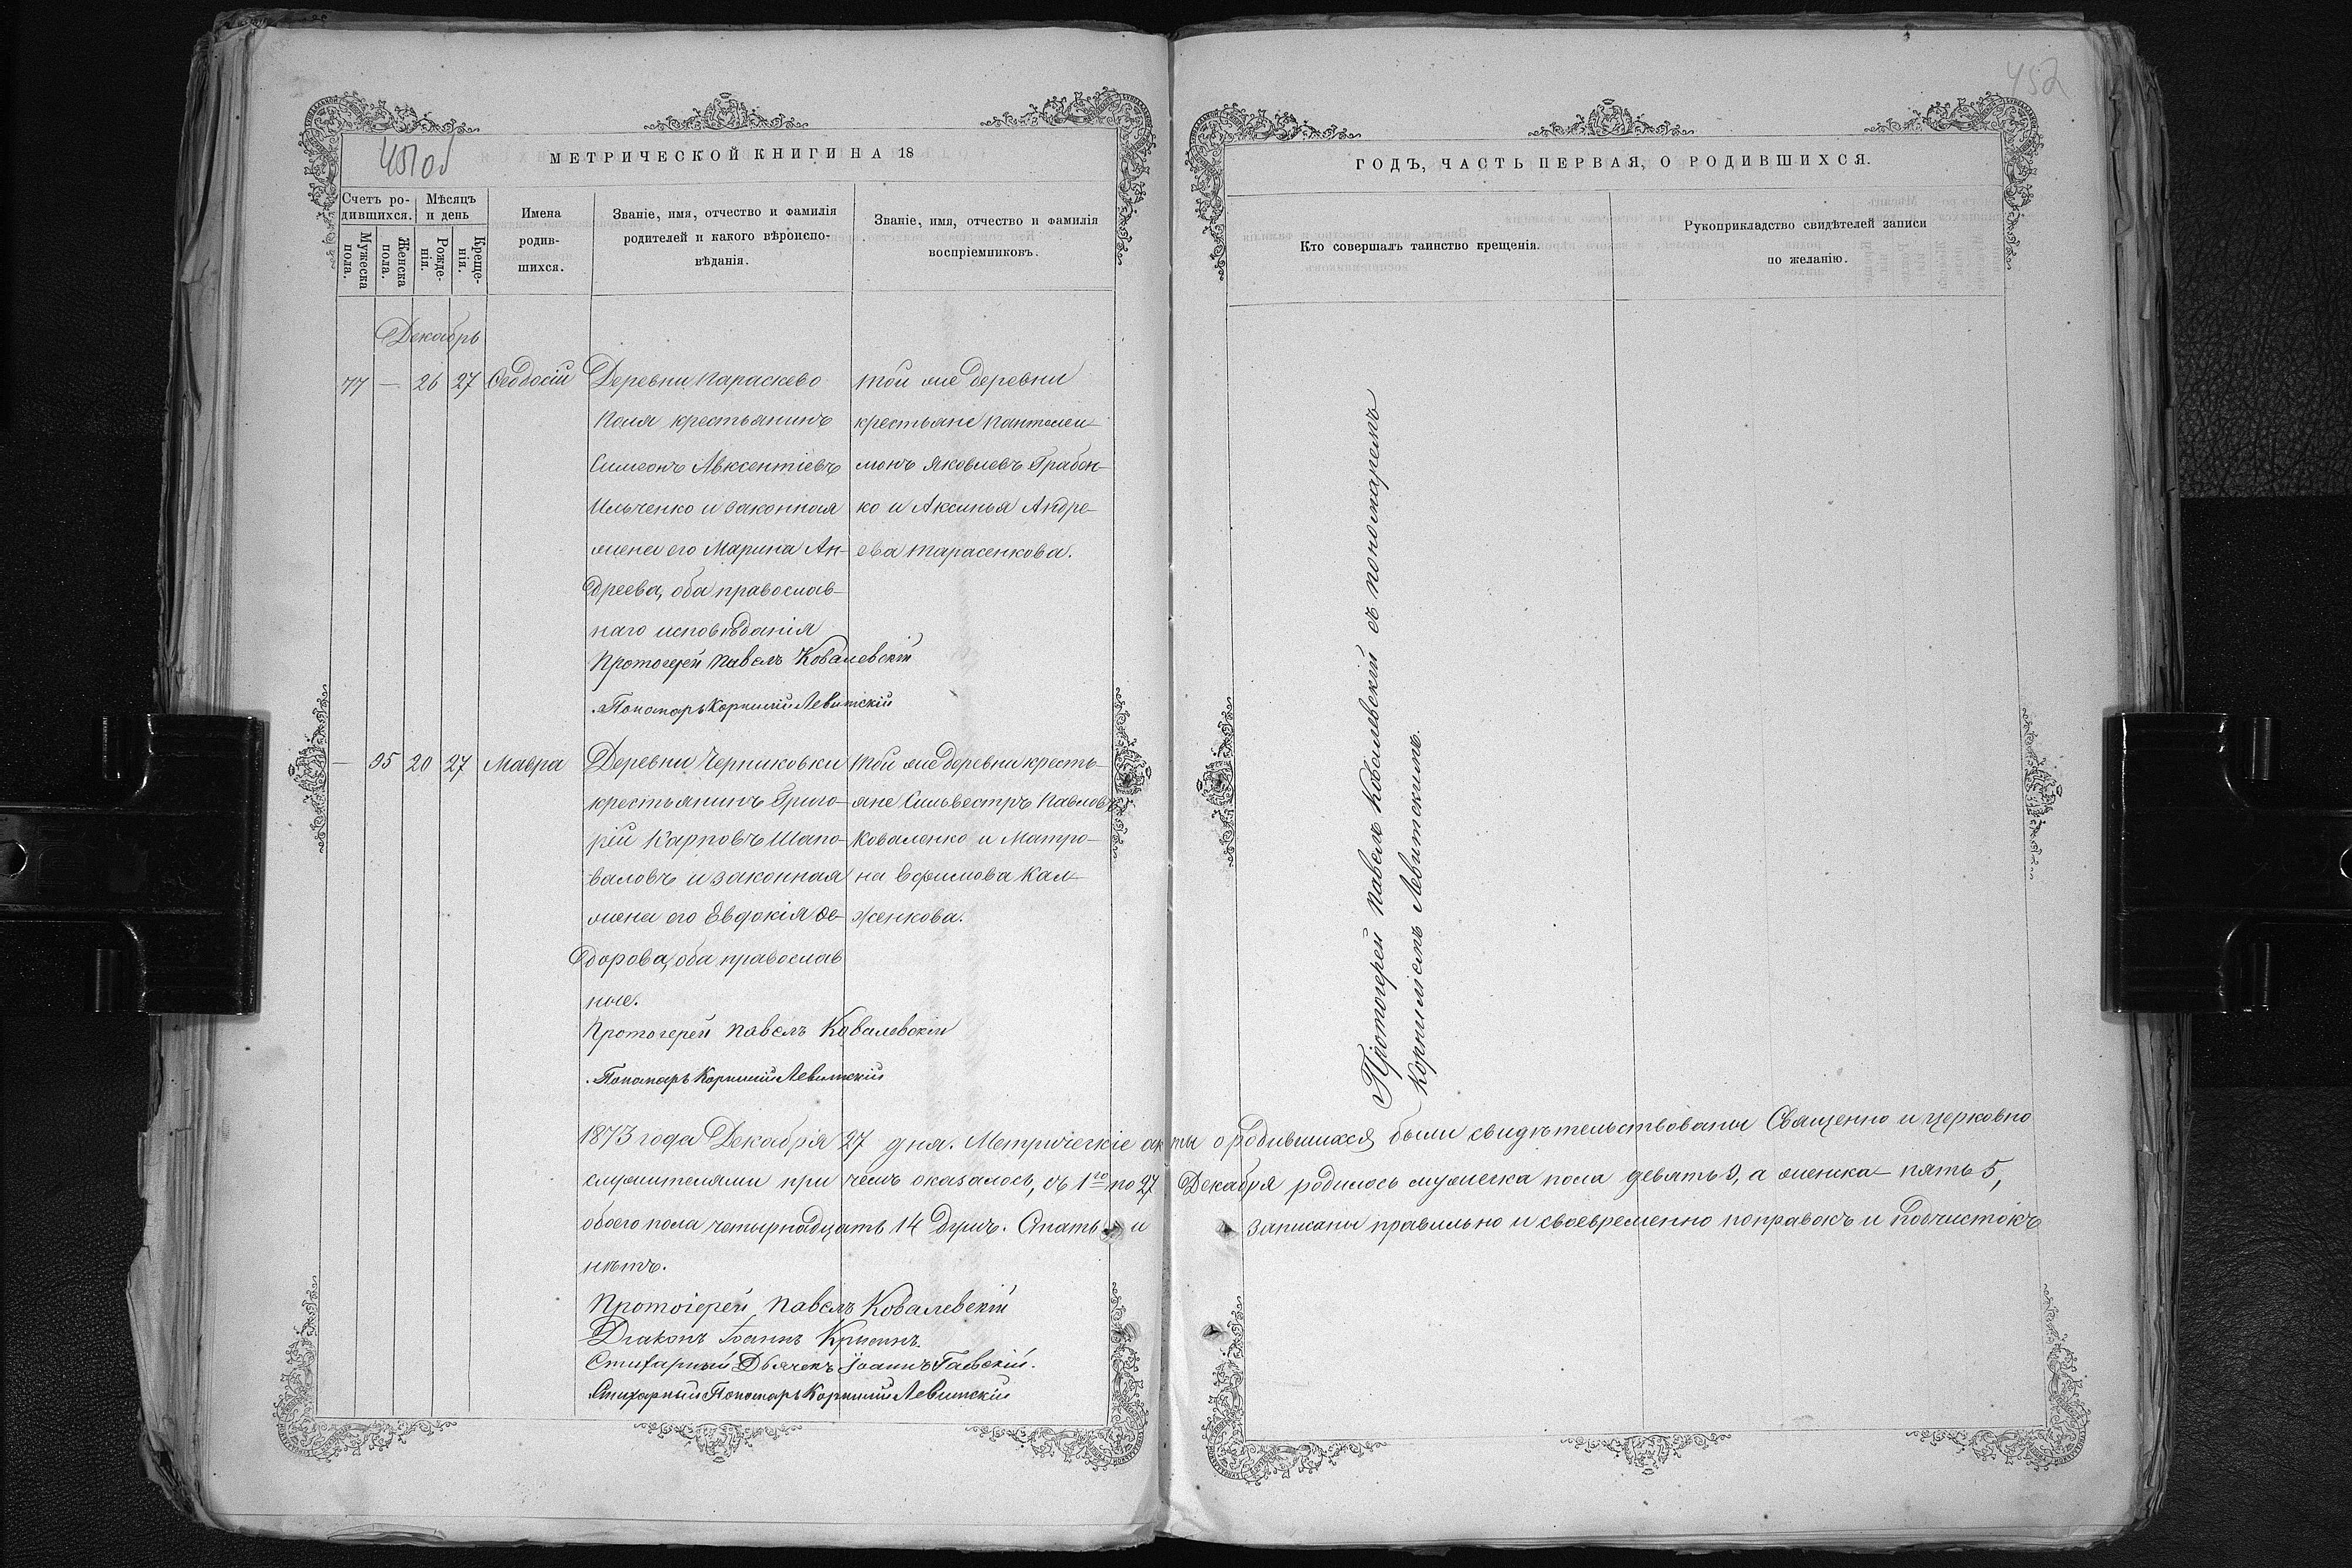 451об
452
МЕТРИЧЕСКОЙ КНИГИ НА 18
ГОДЪ, ЧАСТЬ ПЕРВАЯ, О РОДИВШИХСЯ.
Счетъ ро-
дившихся.
Мѣсяцъ
и день
Мужеска
пола.
Женска
пола.
Рожде-
нія.
Креще-
нія.
Имена
родив-
шихся.
Званіе, имя, отчество и фамилія
родителей и какого вѣроиспо-
вѣданія.
Званіе, имя, отчество и фамилія
воспріемниковъ.
Кто совершалъ таинство крещенія.
Рукоприкладство свидѣтелей записи
по желанію.
Декабрь
77 — 26 27 Ѳеодосій
Деревни Параскево
Поля крестьянинъ
Симеонъ Авксентіевъ
Ильченко и законная
жена его Марина Ан-
дреева, оба православ-
наго исповѣданія
той же деревни
крестьяне Пантелеи-
монъ Яковлевъ Грабон-
ко и Аксинья Андре-
ева Тарасенкова.
Протоіерей Павелъ Ковалевскій
Пономарь Корнилій Левитскій
— 95 20 27 Мавра
Деревни Черниковки
крестьянинъ Григо-
рій Карповъ Шапо-
валовъ и законная
жена его Евдокія Ѳе-
дорова, оба православ
ные.
той же деревни кресть-
яне Сильвестръ Павловъ
Коваленко и Матро-
на Ефимова Кал-
женкова.
Протоіерей Павелъ Ковалевскій
Пономарь Корнилій Левитскій
Протоіерей Павелъ Ковалевскій съ пономаремъ
Корниліемъ Левитскимъ.
1873 года Декабря 27 дня. Метрическіе акты о родившихся были свидѣтельствованы Священно и церковно
служителями при чемъ оказалось, съ 1го по 27 Декабря родилось мужеска пола девять 9, а женска пять 5,
обоего пола четырнадцать 14 душъ. и записаны правильно и своевременно поправокъ и подчистокъ
нѣтъ.
Протоіерей Павелъ Ковалевскій
Діаконъ Іоаннъ
Стихарный Дьячекъ Іоаннъ Гаевскій.
Стихарный Пономарь Корнилій Левитскій